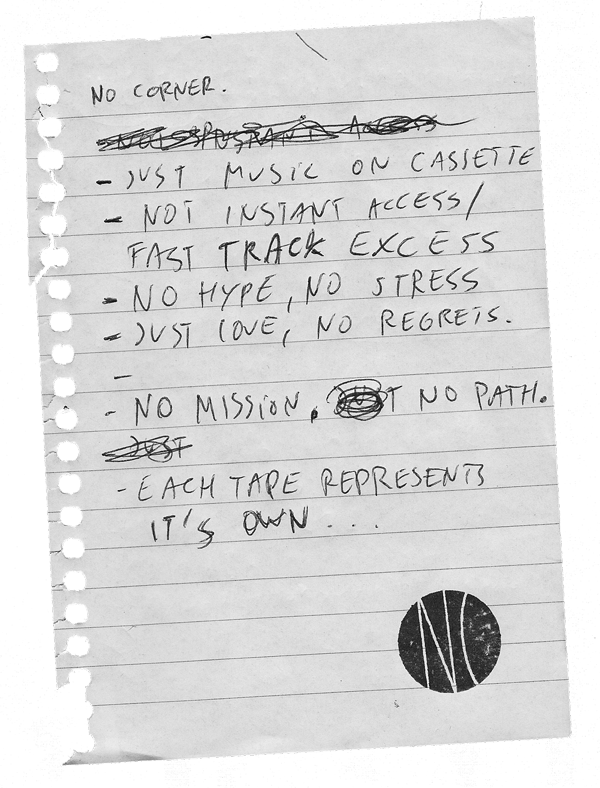 NO CORNER.
- JUST MUSIC ON CASSETTE
- NOT INSTANT ACCESS/
FAST TRACK EXCESS
- NO HYPE, NO STRESS
- JUST LOVE, NO REGRETS.
-
- NO MISSION, NO PATH.
JUST
- EACH TAPE REPRESENTS
IT'S OWN ...
NC